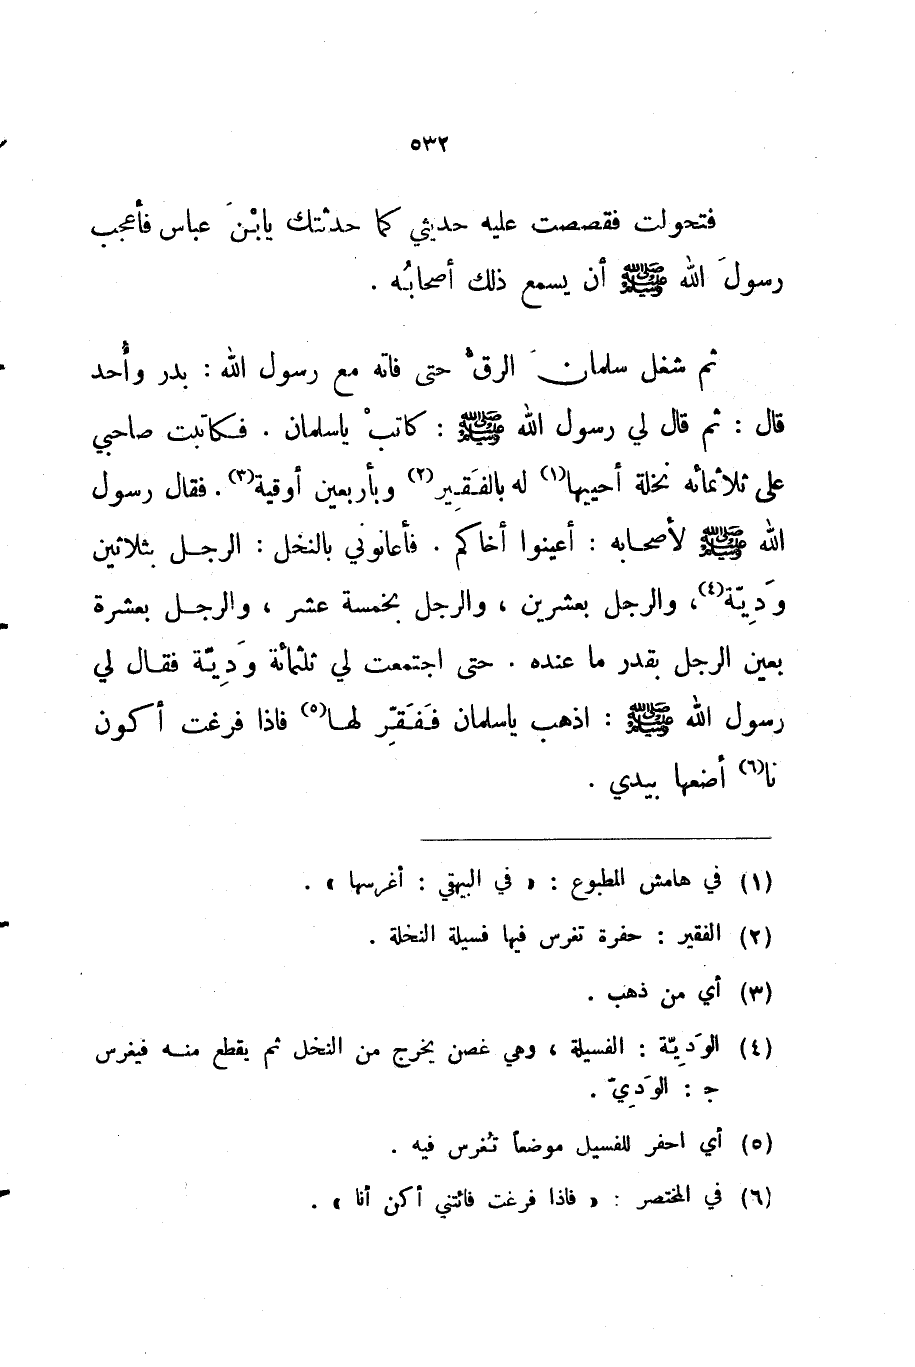 ٥٣٢
فتحولت فقصصت عليه حديثي كما حدثتك يابْنَ عباس فأعجب
رسولَ الله ﷺ أن يسمع ذلك أصحابُه .
ثم شغل سلمانَ الرقُّ حتى فاته مع رسول الله : بدر وأُحد
قال : ثم قال لي رسول الله ﷺ : كاتبْ ياسلمان . فكاتبت صاحبي
على ثلاثمائه نخلة أحييها(١) له بالفَقِير(٢) وبأربعين أوقية(٣) . فقال رسول
الله ﷺ لأصحابه : أعينوا أخاكم . فأعانوني بالنخل : الرجل بثلاثين
وَدِيّة(٤)، والرجل بعشرين ، والرجل بخمسة عشر ، والرجل بعشرة
بعين الرجل بقدر ما عنده . حتى اجتمعت لي ثلثمائة وَدِيّة فقال لي
رسول الله ﷺ : اذهب ياسلمان فَفَقِّر لها(٥) فاذا فرغت أكون
نا(٦) أضعها بيدي .
(١) في هامش المطبوع : « في البيهقي : أغرسها » .
(٢) الفقير : حفرة تغرس فيها فسيلة النخلة .
(٣) أي من ذهب .
(٤) الوَدِيّة : الفسيلة ، وهي غصن يخرج من النخل ثم يقطع منه فيغرس
ج : الوَدِيّ .
(٥) أي احفر للفسيل موضعاً تُغرس فيه .
(٦) في المختصر : « فاذا فرغت فائتني أكن أنا » .